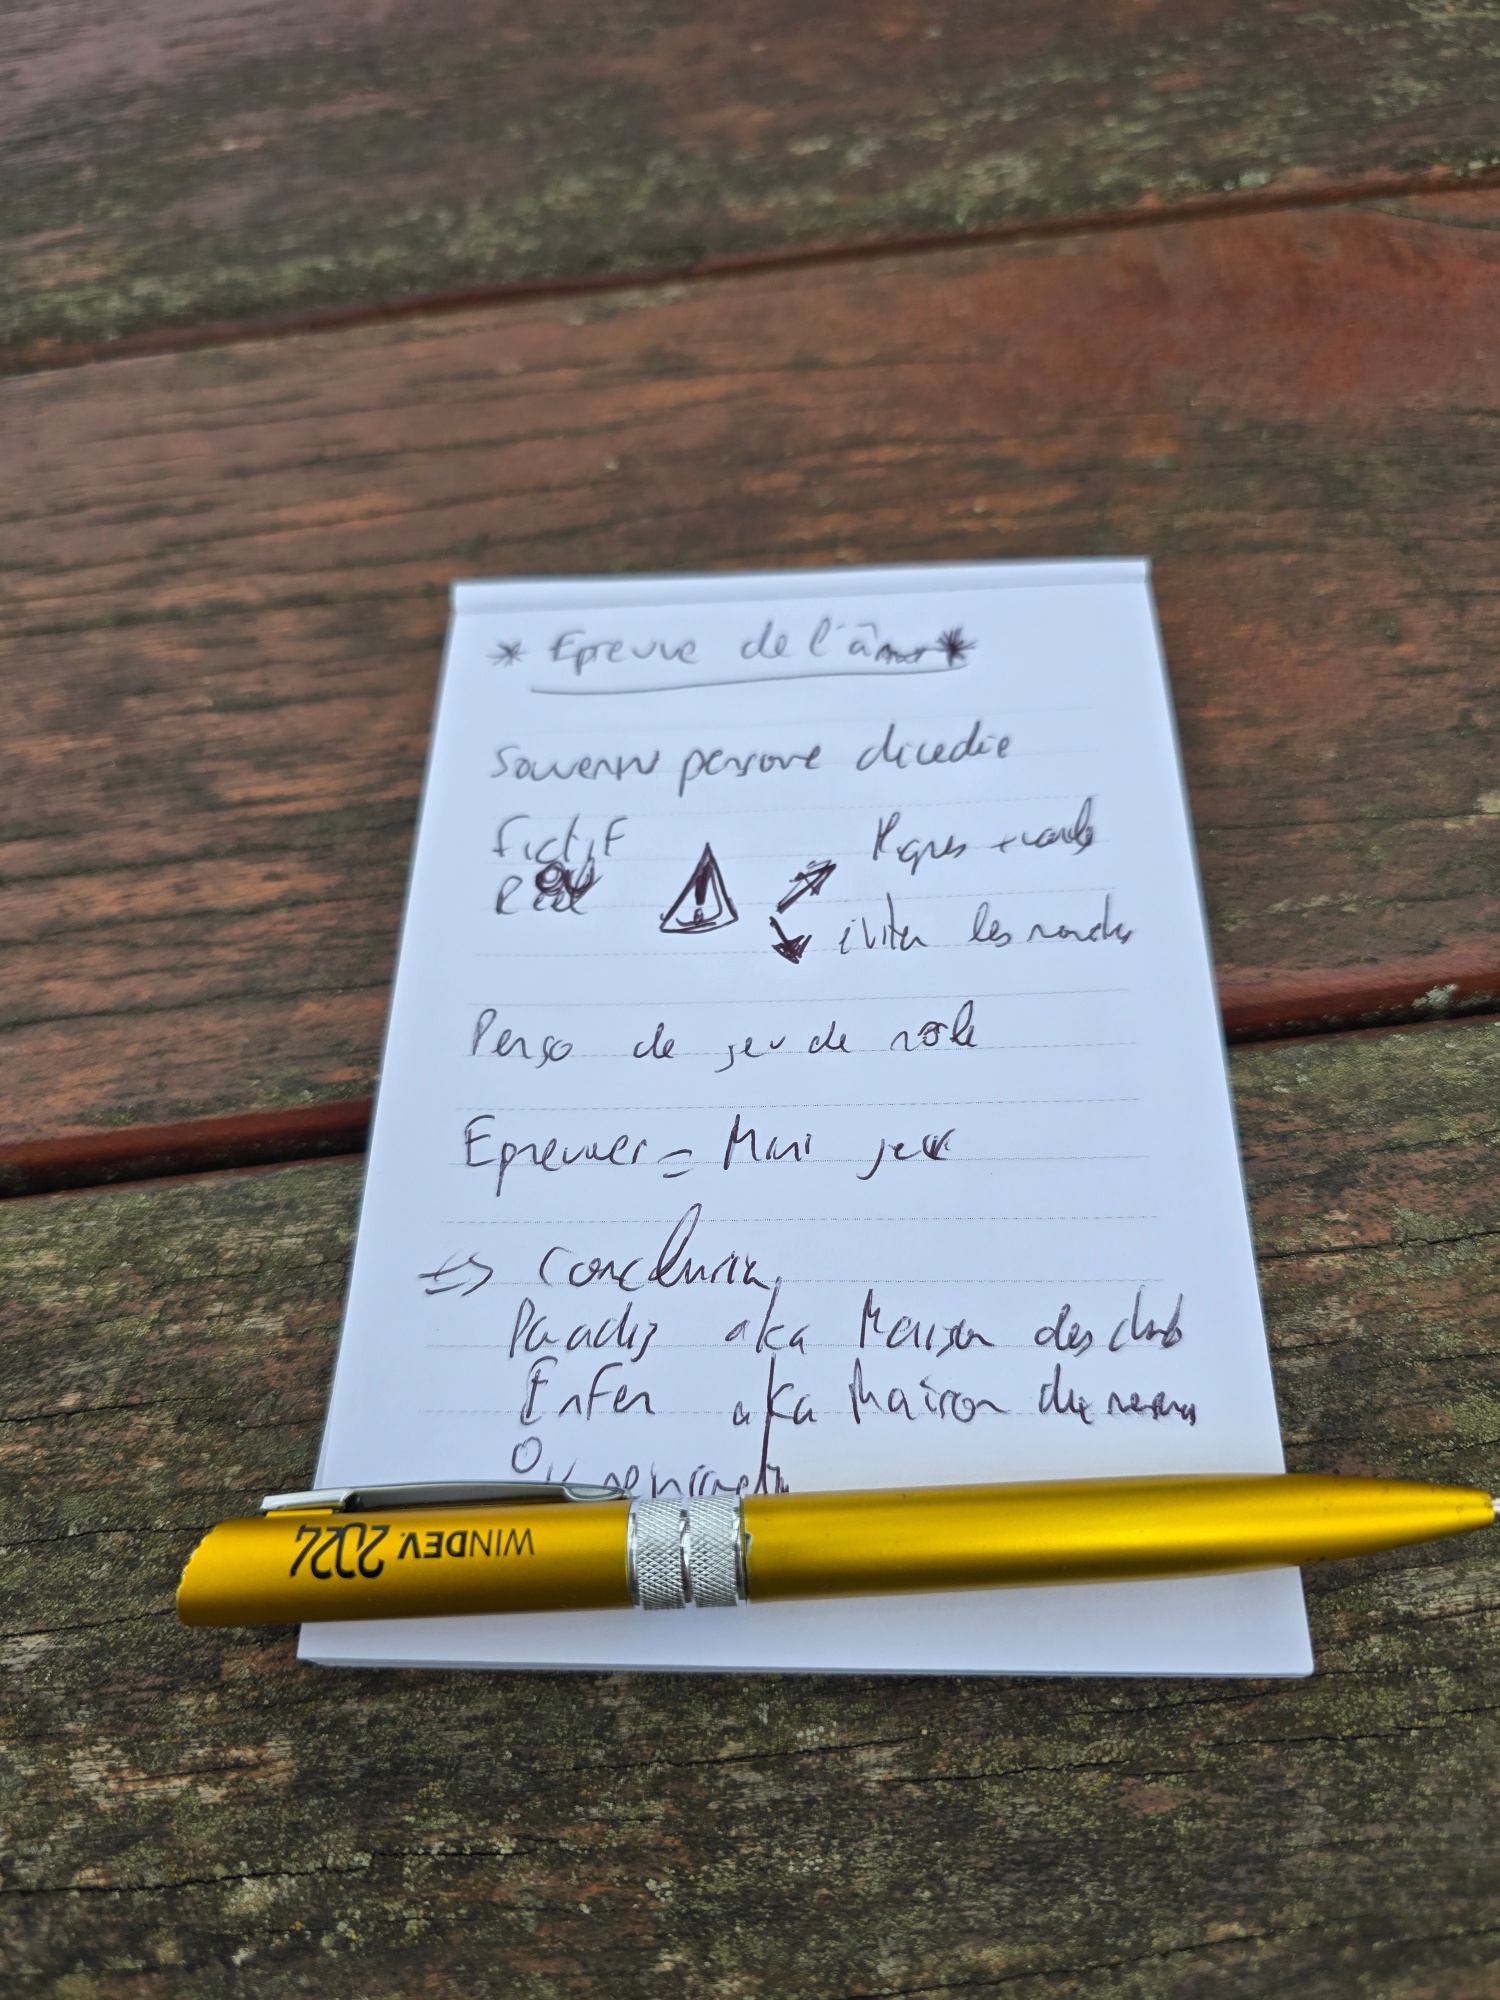 * Epreuve de l'âme *
Souvenir personne dicedie
Fictif
ou
Réel
éviter les
Perso de jeu de rôle
Epreuver = Mini jeu
=> Conclusion
Paradis aka Maison des clubs
Enfer aka Maison des
Ou
WINDEV 2024